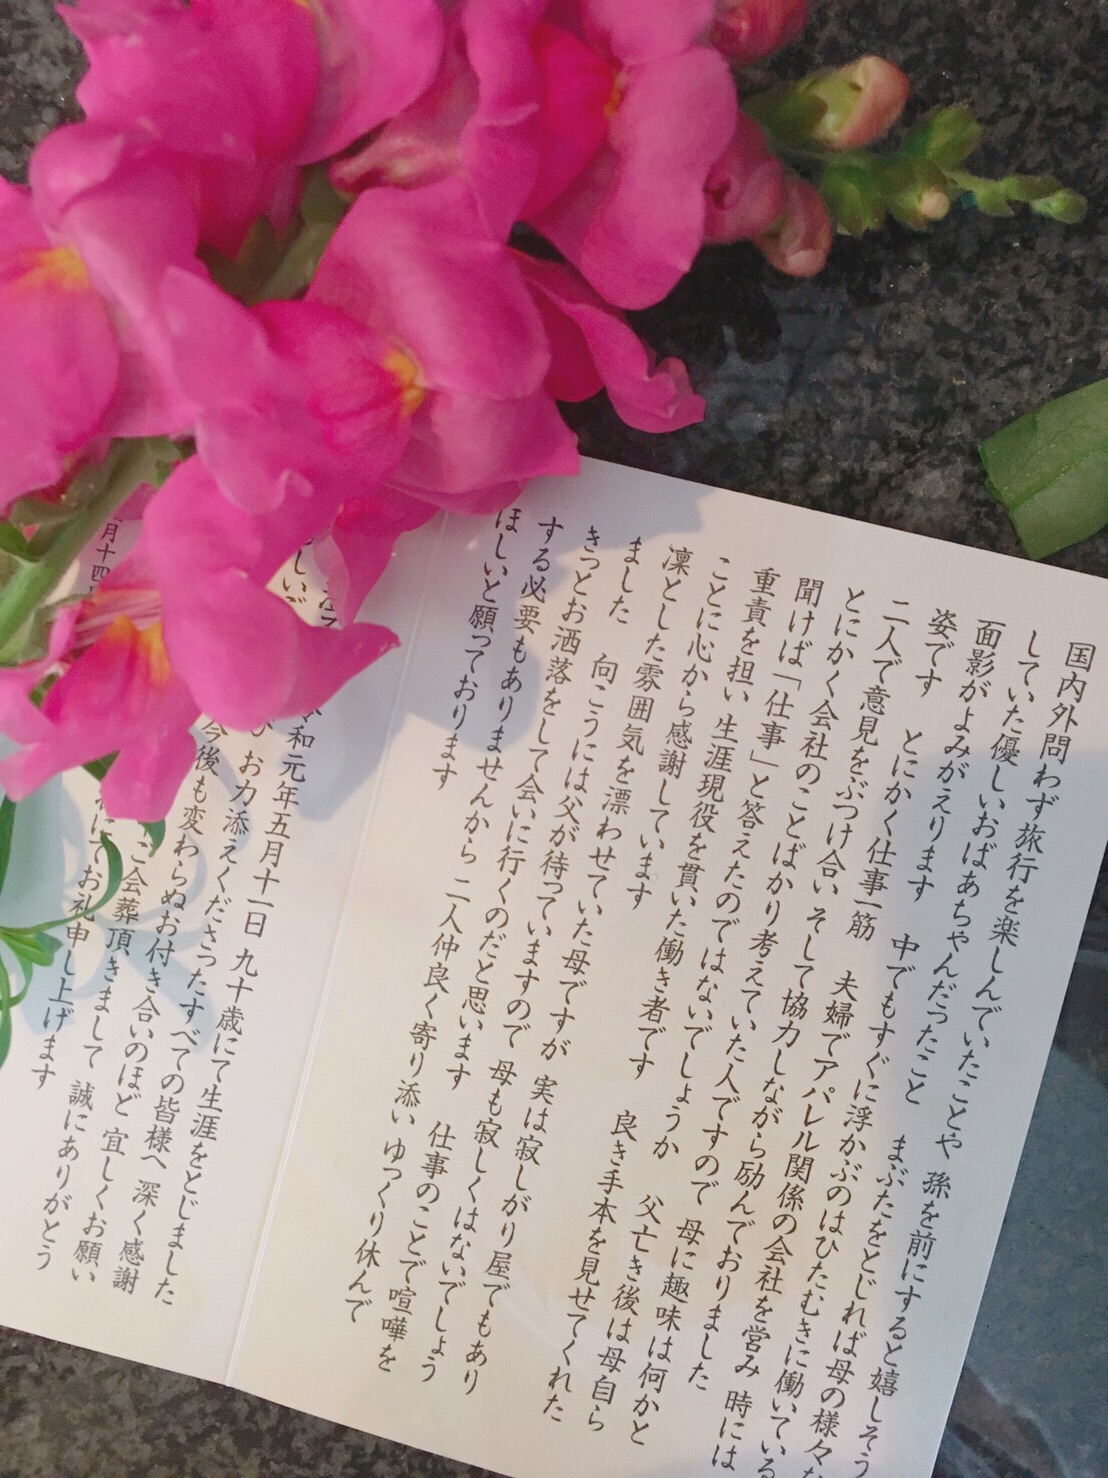 国内外問わず旅行を楽しんでいたことや 孫を前にすると嬉しそう
していた優しいおばあちゃんだったこと まぶたをとじれば母の様々な
面影がよみがえります 中でもすぐに浮かぶのはひたむきに働いている
姿です とにかく仕事一筋 夫婦でアパレル関係の会社を営み 時には
二人で意見をぶつけ合い そして協力しながら励んでおりました
とにかく会社のことばかり考えていた人ですので 母に趣味は何かと
聞けば「仕事」と答えたのではないでしょうか 父亡き後は母自ら
重責を担い 生涯現役を貫いた働き者です 良き手本を見せてくれた
ことに心から感謝しています
凜とした雰囲気を漂わせていた母ですが 実は寂しがり屋でもあり
ました 向こうには父が待っていますので 母も寂しくはないでしょう
きっとお洒落をして会いに行くのだと思います 仕事のことで喧嘩を
する必要もありませんから 二人仲良く寄り添い ゆっくり休んで
ほしいと願っております
令和元年五月十一日 九十歳にて生涯をとじました
お力添えくださったすべての皆様へ 深く感謝
今後も変わらぬお付き合いのほど 宜しくお願い
ご会葬頂きまして 誠にありがとう
にてお礼申し上げます
月十四